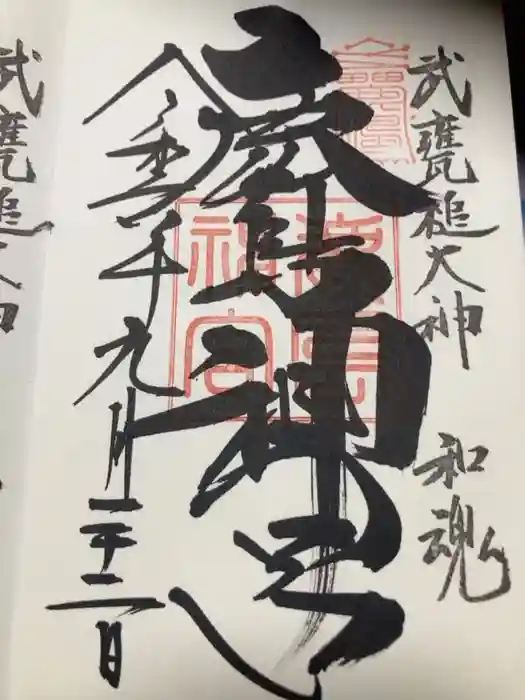 武甕槌大神 和魂
鹿島神宮
令和六年九月二十二日
武甕槌大神